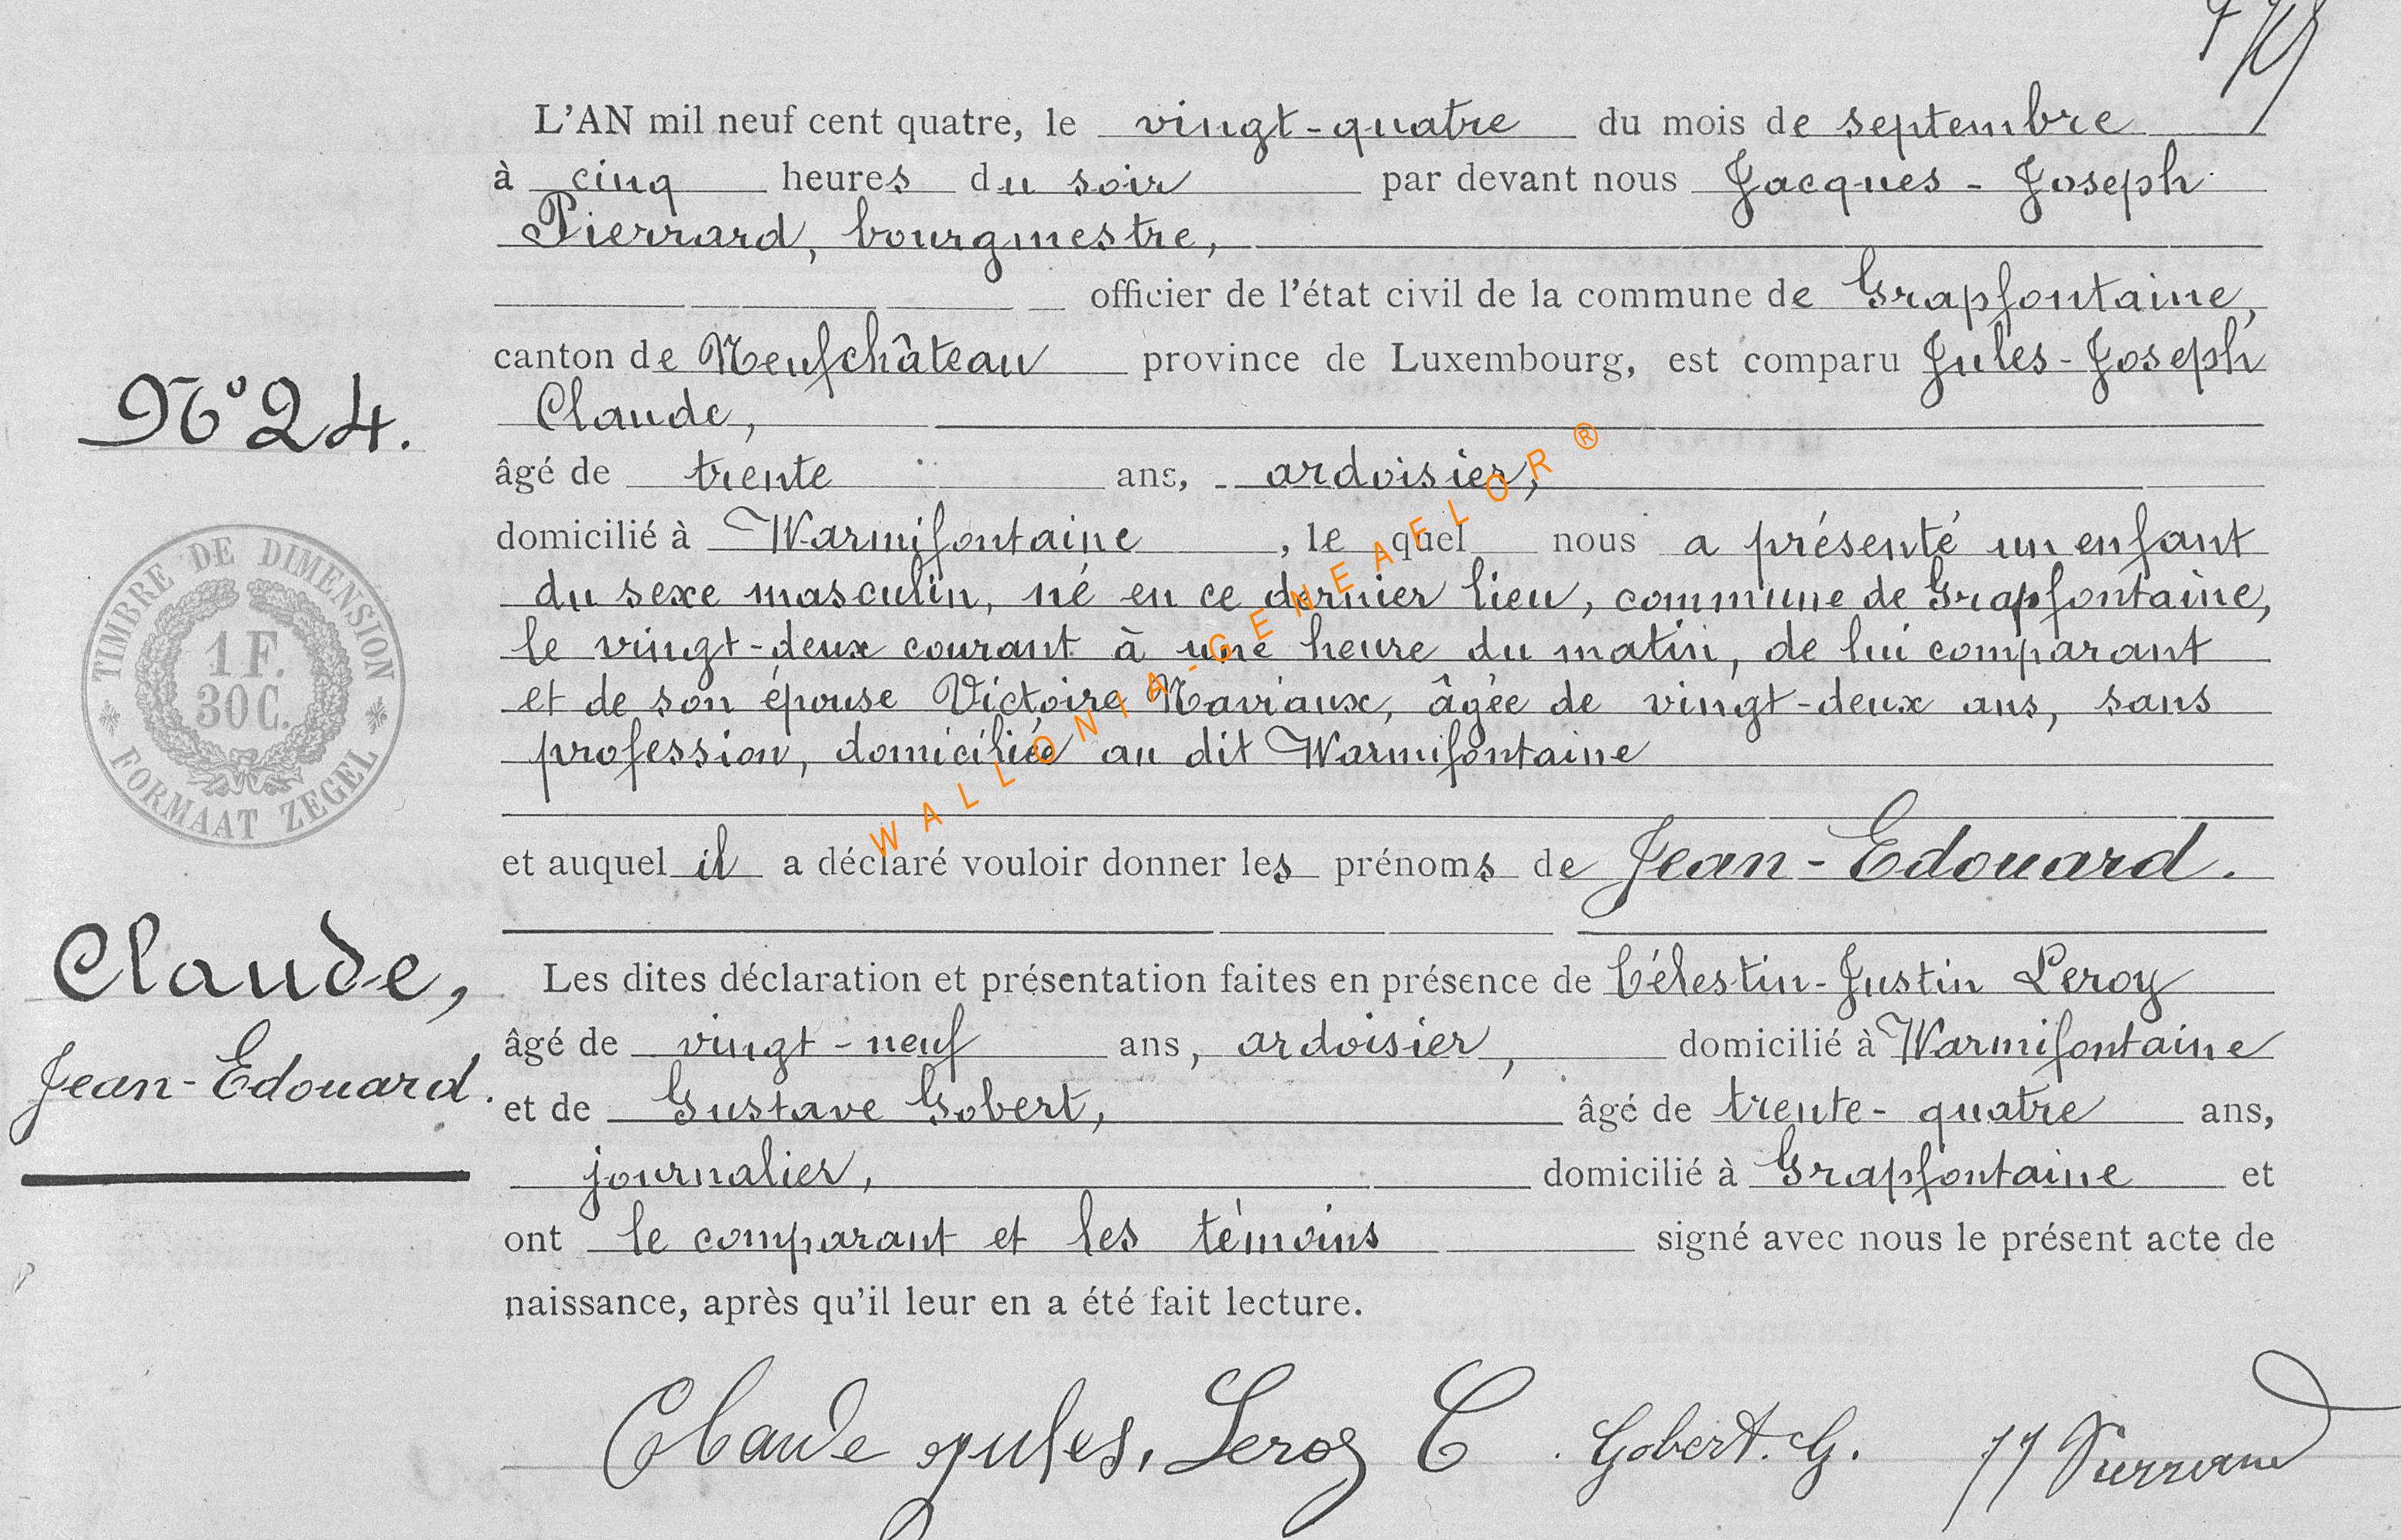 L'AN mil neuf cent quatre, le vingt-quatre du mois de septembre
à cinq heures du soir par devant nous Jacques - Joseph
Pierrard, bourgmestre,
officier de l'état civil de la commune de Grapfontaine,
canton de Neufchâteau province de Luxembourg, est comparu Jules - Joseph
Claude,
N° 24.
âgé de trente ans, ardoisier,
domicilié à Warmifontaine, le quel nous a présenté un enfant
du sexe masculin, né en ce dernier lieu, commune de Grapfontaine,
le vingt-deux courant à une heure du matin, de lui comparant
et de son épouse Victoire Naviaux, âgée de vingt-deux ans, sans
profession, domiciliée au dit Warmifontaine
TIMBRE DE DIMENSION
1 F.
30 C.
FORMAAT ZEGEL
et auquel il a déclaré vouloir donner les prénoms de Jean - Edouard.
Claude,
Jean - Edouard.
Les dites déclaration et présentation faites en présence de Célestin - Justin Leroy
âgé de vingt - neuf ans, ardoisier, domicilié à Warmifontaine
et de Gustave Gobert, âgé de trente - quatre ans,
journalier, domicilié à Grapfontaine et
ont le comparant et les témoins signé avec nous le présent acte de
naissance, après qu'il leur en a été fait lecture.
Claude Jules. Leroy C. Gobert. G. JJ Pierrard
WALLONIA-GENEAFLOR ®